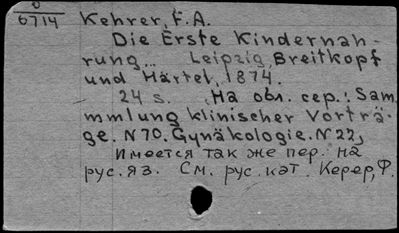 0
6714
Kehrer, F. A.
Die Erste Kindernah-
rung... Leipzig, Breitkopf
und Härtel, 1874.
24 s. На обл. сер.: Sam
mmlung klinischer Vorträ-
ge. N 70. Gynäkologie. N 22,
Имеется так же пер. на
рус. яз. См. рус. кат. Керер, Ф.